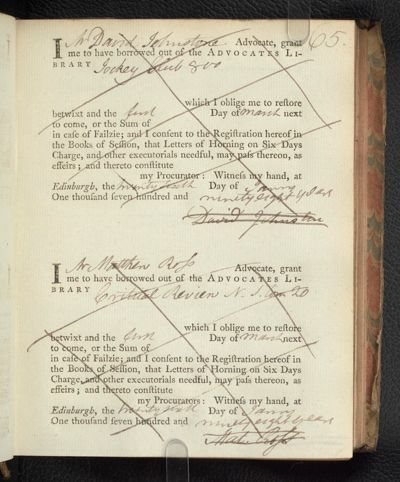 65.
I Mr David Johnstone Advocate, grant
me to have borrowed out of the ADVOCATES LI-
BRARY Jockey Club 8vo
which I oblige me to reſtore
betwixt and the first Day of March next
to come, or the Sum of
in caſe of Failzie; and I conſent to the Regiſtration hereof in
the Books of Seſſion, that Letters of Horning on Six Days
Charge, and other executorials needful, may paſs thereon, as
effeirs; and thereto conſtitute
my Procurator: Witneſs my hand, at
Edinburgh, the twenty sixth Day of Janry
One thouſand ſeven hundred and ninety eight years
David Johnston
I Mr Matthew Ross Advocate, grant
me to have borrowed out of the ADVOCATES LI-
BRARY Critical Review N. S. 20
which I oblige me to reſtore
betwixt and the first Day of March next
to come, or the Sum of
in caſe of Failzie; and I conſent to the Regiſtration hereof in
the Books of Seſſion, that Letters of Horning on Six Days
Charge, and other executorials needful, may paſs thereon, as
effeirs; and thereto conſtitute
my Procurators: Witneſs my hand, at
Edinburgh, the twenty sixth Day of Janry
One thouſand ſeven hundred and ninety eight years
Mat. Ross